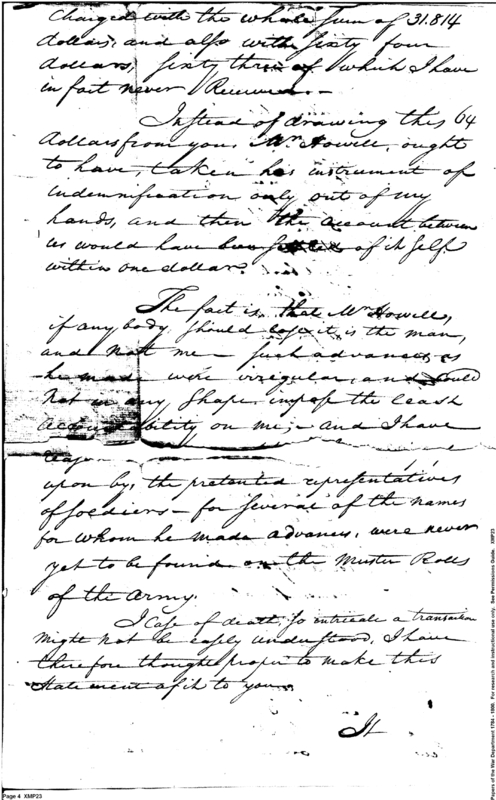 Charged with the whole sum of 31.814
dollars, and also with sixty four
dollars, sixty three of which I have
in fact never Received.—
Instead of drawing this 64
dollars from you, Mr Howell, ought
to have, taken his instrument of
indemnification only out of my
hands, and then the account between
us would have been settled of it self.
within one dollar.
The fact is, that Mr Howell,
if any body should lose it, is the man,
and not me — such advances, as
he made were irregular, and could
not in any shape impose the least
accountability on me; — and I have
upon by, the pretented representatives
of soldiers — for several of the names
for whom he made advances, were never
yet to be found on the Muster Rolls
of the Army.
I Case of death, so intricate a transaction
might not be easily understood, I have
therefore thought proper to make this
Statement of it to you.
It
Page 4 XMP23
Papers of the War Department 1784 - 1800. For research and instructional use only. See Permissions Guide. XMP23